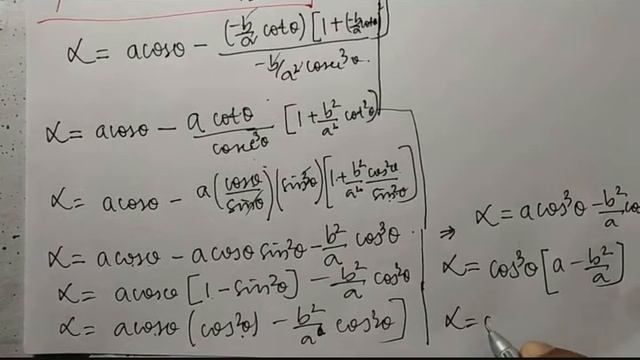 α = acosθ - (-b/a cotθ)[1+(-b/a cotθ)] / -b/a² cosec³θ
α = acosθ - a cotθ / cosec³θ [1+ b²/a² cot²θ]
α = acosθ - a(cosθ/sinθ)(sin³θ)[1+ b²/a² cos²θ/sin²θ]
α = acosθ - acosθ sin²θ - b²/a cos³θ
α = acosθ [1-sin²θ] - b²/a cos³θ
α = acosθ (cos²θ) - b²/a cos³θ]
⇒ α = acos³θ - b²/a
α = cos³θ [a - b²/a]
α =